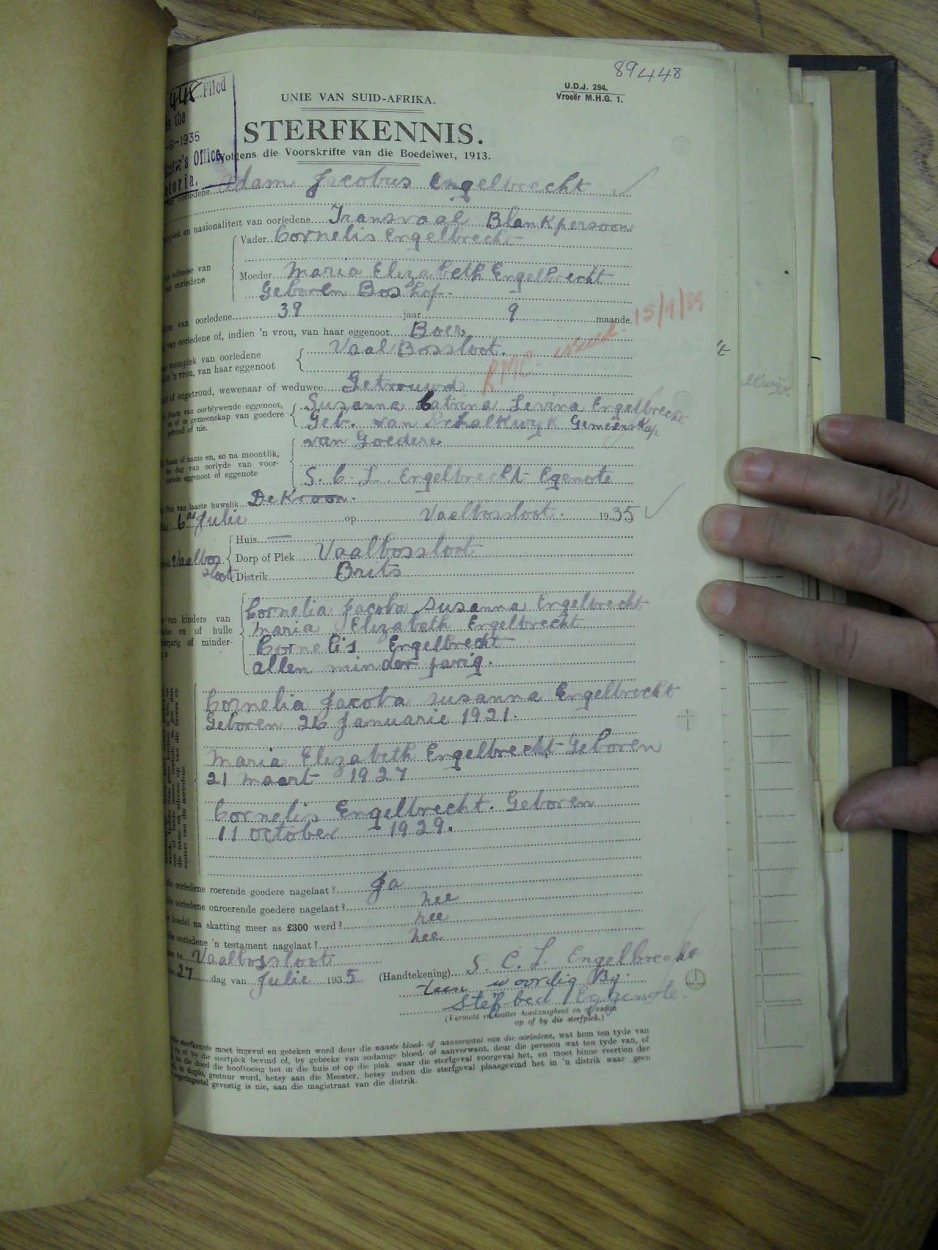 89448
U.D.J. 294.
Vroeër M.H.G. 1.
Filed
the
-8-1935
Master's Office
toria.
UNIE VAN SUID-AFRIKA.
STERFKENNIS.
Volgens die Voorskrifte van die Boedelwet, 1913.
oorledene Adam Jacobus Engelbrecht
en nasionaliteit van oorledene Transvaal Blankpersoon
Vader Cornelis Engelbrecht
adresse van
oorledene
Moeder Maria Elizabeth Engelbrecht
Geboren Boshof.
van oorledene 39 jaar 9 maande 15/9/35
van oorledene of, indien 'n vrou, van haar eggenoot Boer
woonplek van oorledene Vaal Bossloot.
'n vrou, van haar eggenoot
of ongetroud, wewenaar of weduwee Getrouwd
Naam van oorblywende eggenoot, Suzanna Catrina Levina Engelbrecht
of in gemeenskap van goedere
of nie. Geb. van Schalkwyk Gemeenskap
van Goedere
name en, so na moontlik,
dag van oorlyde van voor-
eggenoot of eggenote S. C. L. Engelbrecht Egenote
Plek van laaste huwelik De Kroon.
6de Julie op Vaalbossloot. 1935
Huis —
Vaalbos
sloot
Dorp of Plek Vaalbossloot
Distrik Brits
van kinders van
en of hulle
of minder-
Cornelia Jacoba Susanna Engelbrecht
Maria Elizabeth Engelbrecht
Cornelis Engelbrecht
allen minder jarig.
Cornelia Jacoba Susanna Engelbrecht
Geboren 26 Januarie 1921.
Maria Elizabeth Engelbrecht Geboren
21 Maart 1927
Cornelis Engelbrecht. Geboren
11 October 1929.
die oorledene roerende goedere nagelaat? Ja
oorledene onroerende goedere nagelaat? nee
boedel na skatting meer as £300 werd? nee
oorledene 'n testament nagelaat? nee
te Vaalbossloot
27 dag van Julie 1935 (Handtekening) S. C. L. Engelbrecht
teen woordig By
Stefbed Eggenote
op of by die sterfplek.)
sterfkennis moet ingevul en geteken word deur die naaste bloed- of aanverwant van die oorledene, wat hom ten tyde van
by die sterfplek bevind of, by gebreke van sodanige bloed- of aanverwant, deur die persoon wat ten tyde van, of
die dood die hooftoesig het in die huis of op die plek waar die sterfgeval voorgeval het, en moet binne veertien dae
in duplo, gestuur word, hetsy aan die Meester, hetsy indien die sterfgeval plaasgevind het in 'n distrik waar geen
gevestig is nie, aan die magistraat van die distrik.